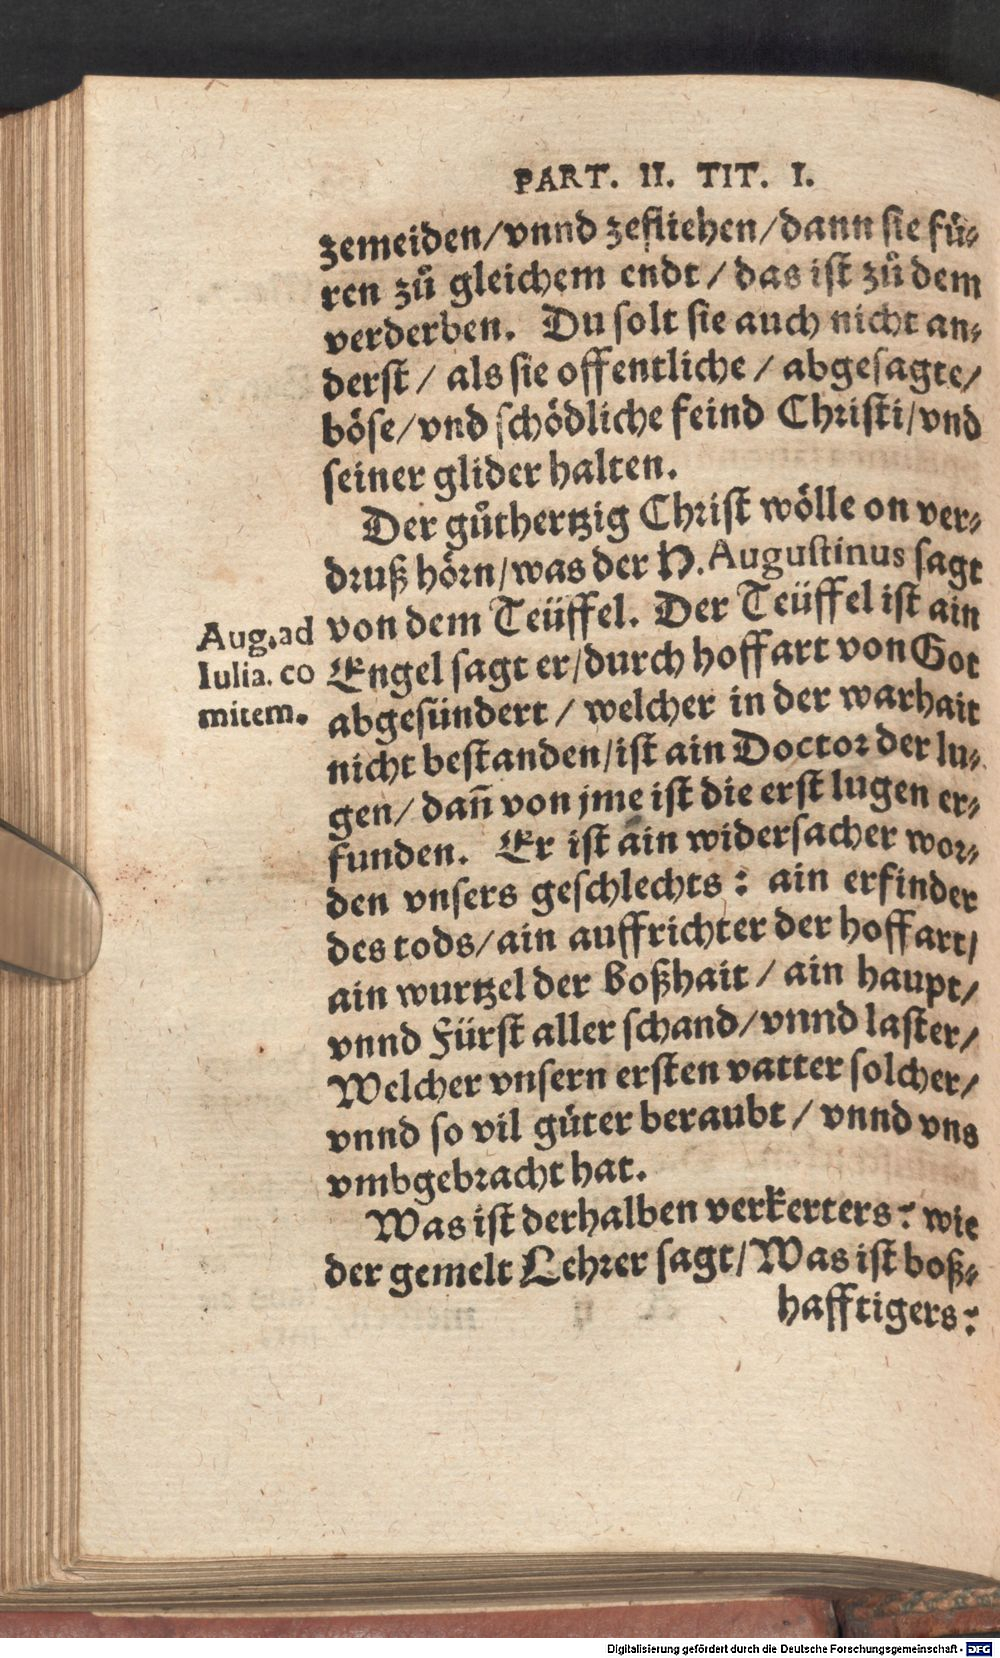 PART. II. TIT. I.
zemeiden/vnnd zefliehen/dann sie fü⸗
ren zů gleichem endt / das ist zů dem
verderben. Du solt sie auch nicht an⸗
derst / als sie offentliche / abgesagte/
böse/vnd schödliche feind Christi/vnd
seiner glider halten.
Der gůthertzig Christ wölle on ver⸗
druß hörn/was der H. Augustinus sagt
von dem Teüffel. Der Teüffel ist ain
Engel sagt er/durch hoffart von Got
abgesündert / welcher in der warhait
nicht bestanden/ist ain Doctor der lu⸗
gen/ dañ von jme ist die erst lugen er⸗
funden. Er ist ain widersacher wor⸗
den vnsers geschlechts : ain erfinder
des tods/ain auffrichter der hoffart/
ain wurtzel der Boßhait / ain haupt/
vnnd Fürst aller schand/vnnd laster/
Welcher vnsern ersten vatter solcher/
vnnd so vil güter beraubt / vnnd vns
vmbgebracht hat.
Was ist derhalben verkerters? wie
der gemelt Lehrer sagt/Was ist boß⸗
hafftigers?
Aug. ad
Iulia. co
mitem.
Digitalisierung gefördert durch die Deutsche Forschungsgemeinschaft - DFG